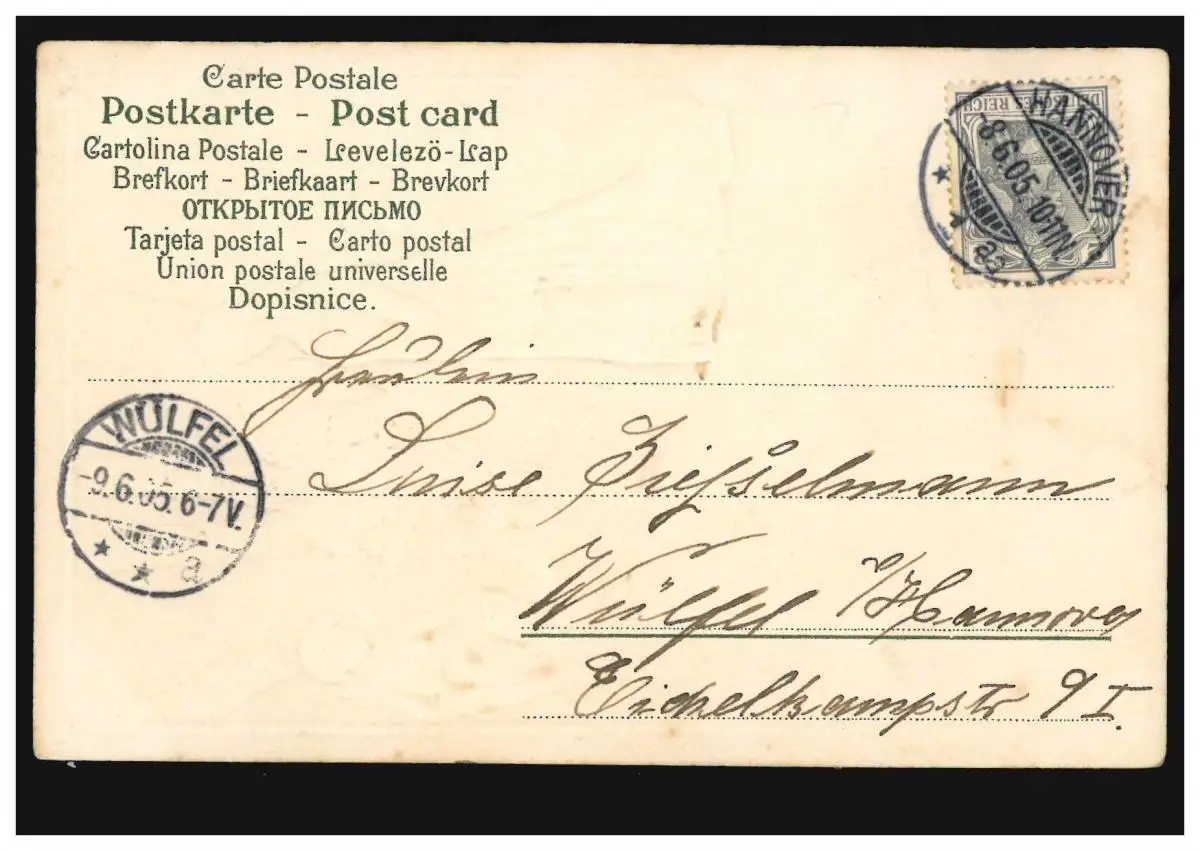 Carte Postale
Postkarte - Post card
Cartolina Postale - Levelező-Lap
Brefkort - Briefkaart - Brevkort
ОТКРЫТОЕ ПИСЬМО
Tarjeta postal - Carto postal
Union postale universelle
Dopisnice.
DEUTSCHES REICH
HANNOVER
-8.6.05. 10-11N.
* * a
Fräulein
Luise Ziesselmann
Wülfel b/Hannover
Eichelkampstr 9 I.
WÜLFEL
-9.6.05. 6-7V.
* * a